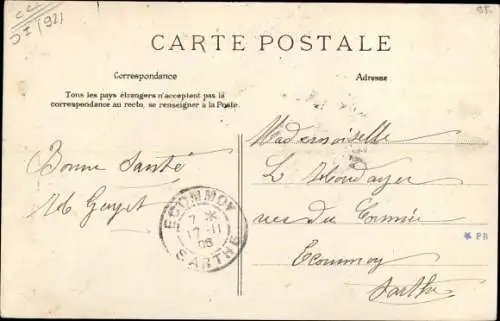 CARTE POSTALE
Correspondance
Tous les pays étrangers n'acceptent pas la
correspondance au recto, se renseigner à la Poste.
Adresse
Bonne Santé
ECOMMOY
7 *
17 -11
08
SARTHE
Mademoiselle
L
rue du
Ecommoy
Sarthe
* PB